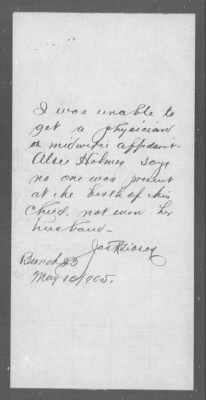 I was unable to
get a physician
or midwife's affidavit.
Alsie Holmes says
no one was present
at the birth of this
child, not even her
husband.
Jas
May 10, 1905.